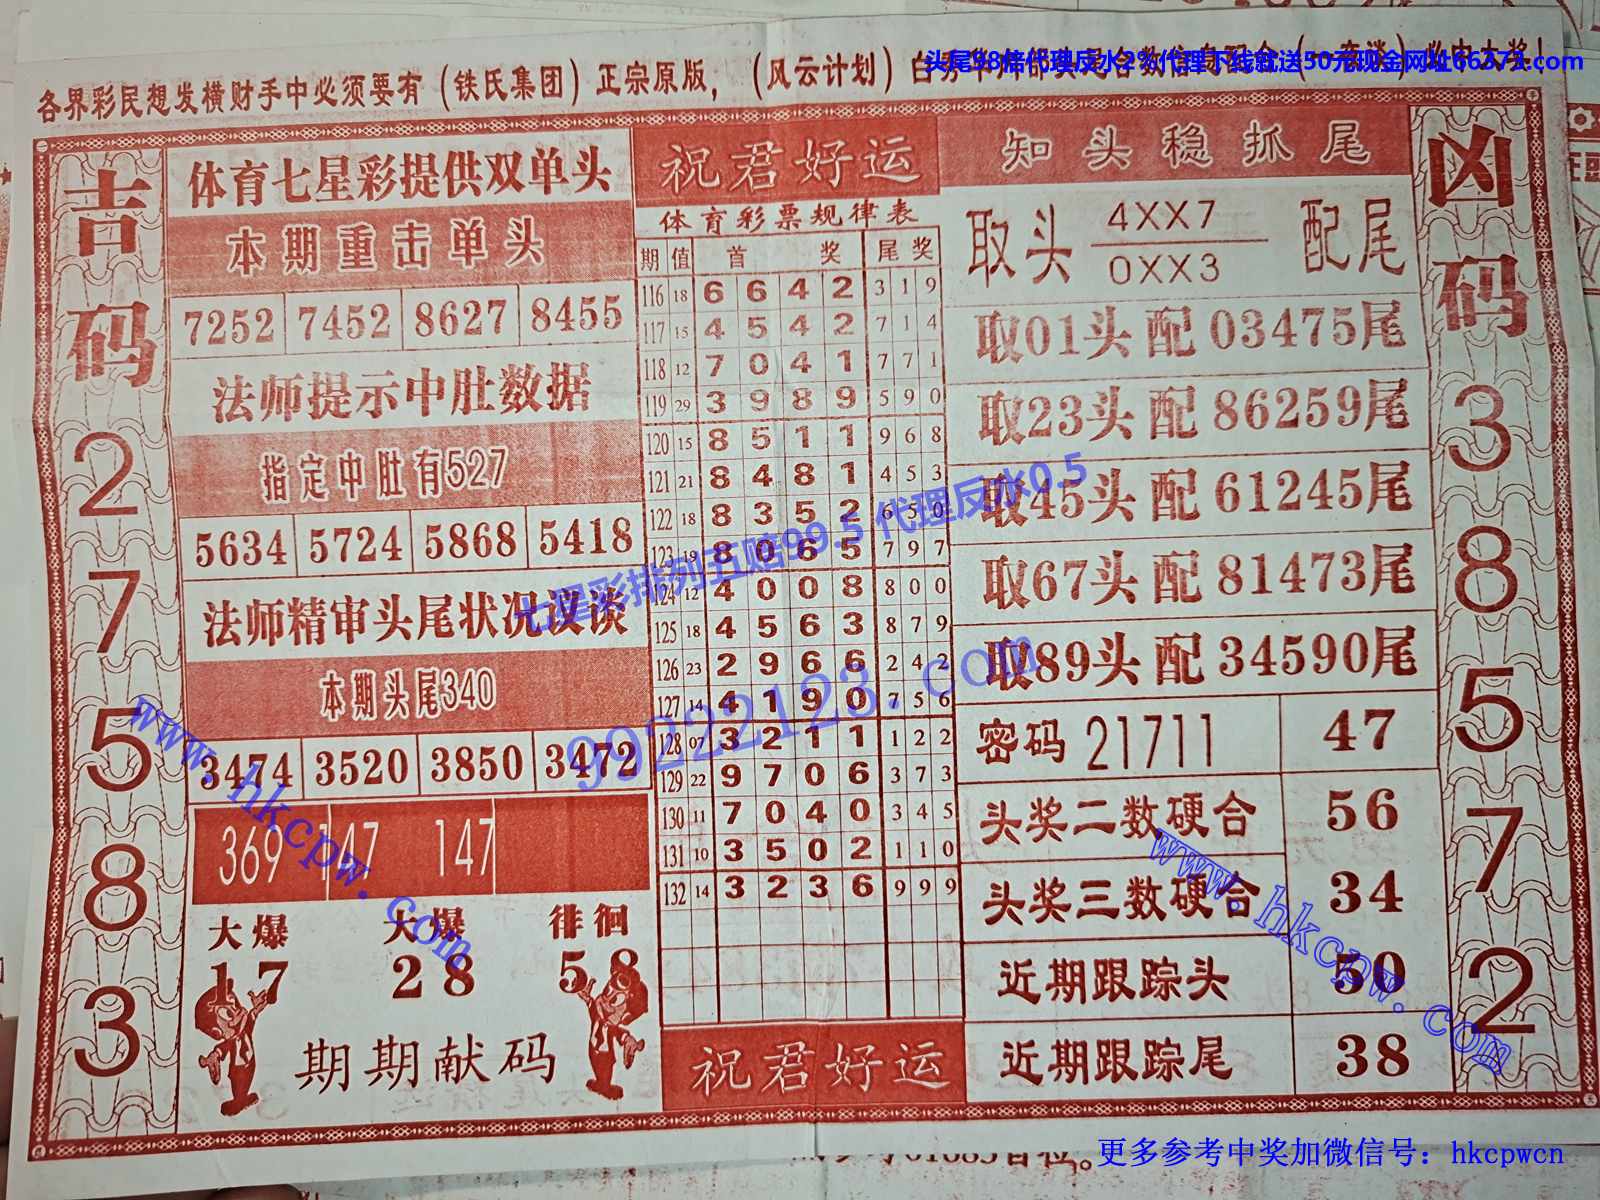 头尾98倍代理反水2%代理下线就送50元现金网址66373.com
各界彩民想发横财手中必须要有（铁氏集团）正宗原版，（风云计划）
吉码
2
7
5
8
3
体育七星彩提供双单头
本期重击单头
7252 7452 8627 8455
法师提示中肚数据
指定中肚有527
5634 5724 5868 5418
法师精审头尾状况误谈
本期头尾340
3474 3520 3850 3472
369 147 147
大爆 大爆 徘徊
17 28 58
期期献码
祝君好运
体育彩票规律表
期 值 首 奖 尾 奖
116 18 6 6 4 2 3 1 9
117 15 4 5 4 2 7 1 4
118 12 7 0 4 1 7 7 1
119 29 3 9 8 9 5 9 0
120 15 8 5 1 1 9 6 8
121 21 8 4 8 1 4 5 3
122 18 8 3 5 2 6 5 0
123 19 8 0 6 5 7 9 7
124 12 4 0 0 8 8 0 0
125 18 4 5 6 3 8 7 9
126 23 2 9 6 6 2 4 2
127 14 4 1 9 0 7 5 6
128 07 3 2 1 1 1 2 2
129 22 9 7 0 6 3 7 3
130 11 7 0 4 0 3 4 5
131 10 3 5 0 2 1 1 0
132 14 3 2 3 6 9 9 9
祝君好运
知头稳抓尾
取头 4XX7 配尾
0XX3
取01头 配 03475尾
取23头 配 86259尾
取45头 配 61245尾
取67头 配 81473尾
取89头 配 34590尾
密码 21711 47
头奖二数硬合 56
头奖三数硬合 34
近期跟踪头 50
近期跟踪尾 38
凶码
3
8
5
7
2
七星彩排列五赔99.5 代理反水0.5
99222123.com
www.hkcpw.com
www.hkcpw.com
更多参考中奖加微信号：hkcpwcn